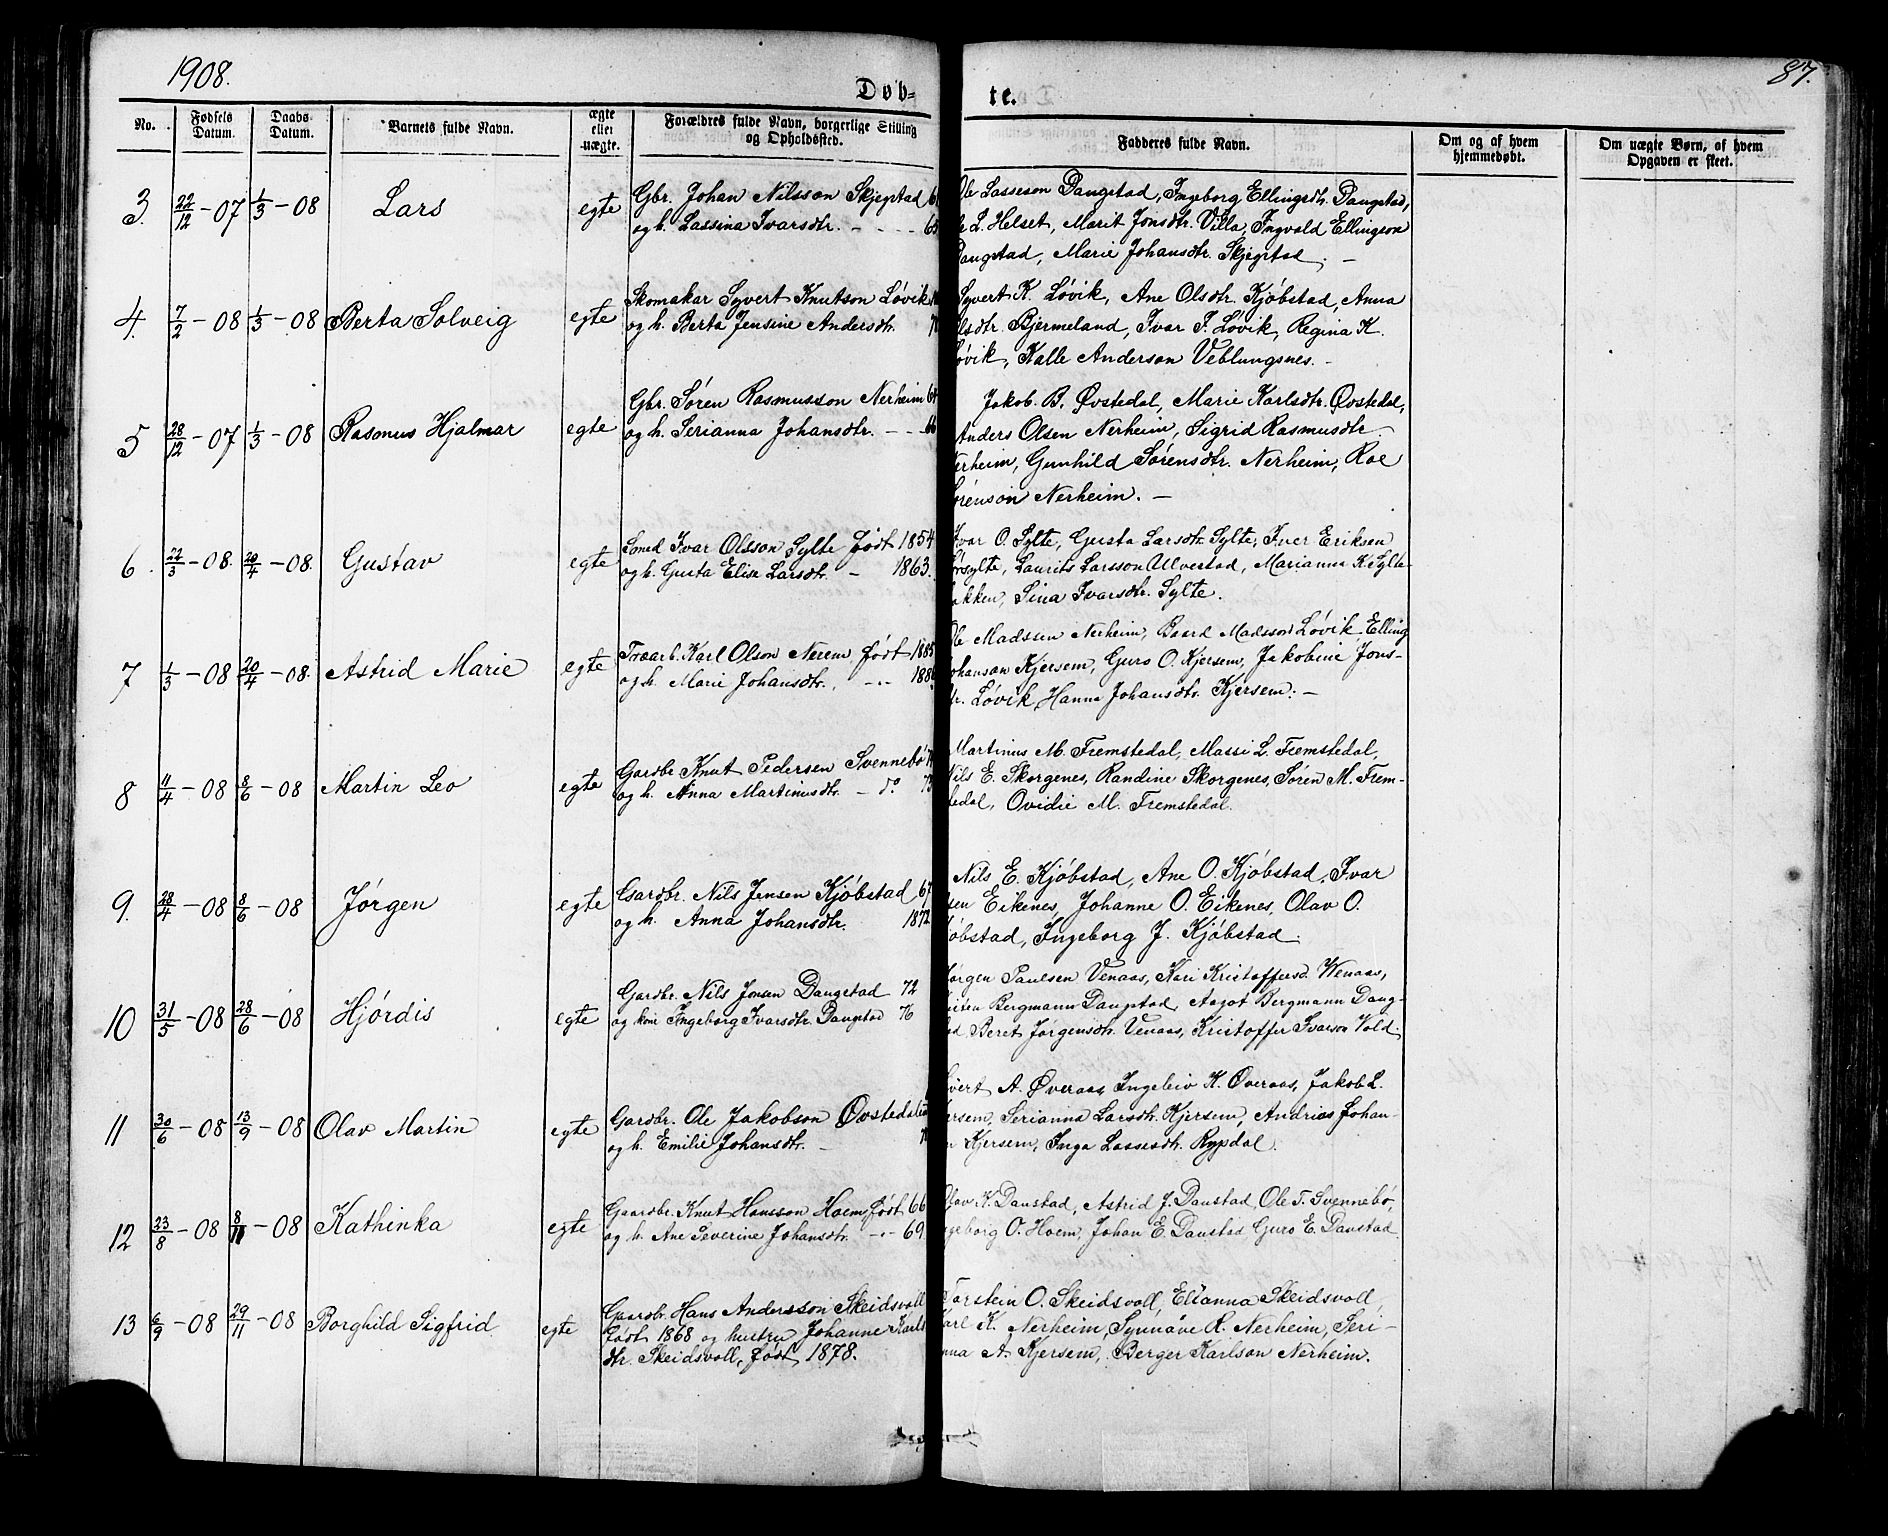 1908.
87.
Døb-
te.
No.
Fødsels Datum.
Daabs Datum.
Barnets fulde Navn.
ægte eller uægte.
Forældres fulde Navn, borgerlige Stilling og Opholdssted.
Fadderes fulde Navn.
Om og af hvem hjemmedøbt.
Om uægte Børn, af hvem Opgaven er skeet.
3. 22/12 - 07 1/3 - 08 Lars egte
Gbr. Johan Nilsson Skjegstad
og h. Lassina Ivarsdtr. - - - -
Ole Lasseson Daugstad, Ingeborg Ellingsdtr. Daugstad,
L. Helset, Marit Jonsdtr. Villa, Ingvald Ellingson
Daugstad, Marie Johansdtr. Skjegstad. -
4. 7/2 - 08 1/3 - 08 Berta Solveig egte
Skomakar Syvert Knutson Løvik
og h. Berta Jensine Andersdtr.
Syvert K. Løvik, Ane Olsdtr. Kjøbstad, Anna
Bjermeland, Ivar I. Løvik, Regina K.
Løvik, Kalle Anderson Veblungsnes. -
5 28/12 - 07 1/3 - 08 Rasmus Hjalmar egte
Gbr. Søren Rasmusson Nerheim
og h. Serianna Johansdtr. - - - 66
Jakob B. Øvstedal, Marie Karlsdtr. Øvstedal,
Anders Olsen Nerheim, Sigrid Rasmusdtr. -
Nerheim, Gunhild Sørensdtr. Nerheim, Roe
Sørenson Nerheim. -
6. 22/3 - 08. 20/4 - 08. Gustav egte
Ivar Olsson Sylte født 1854
og h. Gusta Elise Larsdtr. - 1863.
Ivar O. Sylte, Gusta Larsdtr. Sylte, Iver Eriksen
Laurits Larsson Ulvestad, Marianna K. Sylte-
bakken, Sina Ivarsdtr. Sylte.
7 1/3 - 08 20/4 - 08. Astrid Marie egte
Træarb. Karl Olson Nerem født 1885
og h. Marie Johansdtr. - - 1886
Ole Madssen Nerheim, Baard Madsson Løvik, Elling
Johanson Kjersem, Guro O. Kjersem, Jakobine Jons-
dtr. Løvik, Hanna Johansdtr. Kjersem. -
8 11/4 - 08 8/6 - 08 Martin Leo egte
Gardbr. Knut Pedersen Svennebø
og h. Anna Martinusdtr. - do.
Martinus M. Fremstedal, Massi L. Fremstedal,
Nils E. Skorgenes, Randine Skorgenes, Søren M. Frem-
stedal, Ovidie M. Fremstedal.
9. 28/4 - 08 8/6 - 08 Jørgen egte
Gardbr. Nils Jensen Kjøbstad 67
og h. Anna Johansdtr. 1872
Nils E. Kjøbstad, Ane O. Kjøbstad, Ivar
Eikenes, Johanne O. Eikenes, Olav O.
Kjøbstad, Ingeborg J. Kjøbstad.
10 31/5 - 08 28/6 - 08 Hjørdis egte
Gardbr. Nils Jonsen Daugstad 72
og kone Ingeborg Ivarsdtr. Daugstad 76
Jørgen Paulsen Venaas, Kari Kristoffersd. Wenaas,
Bergmann Daugstad, Aagot Bergmann Daug-
stad, Beret Jørgensdtr. Venaas, Kristoffer Ivarson Vold.
11 30/6 - 08 13/9 - 08 Olav Martin egte
Gardbr. Ole Jakobson Øvstedal
og h. Emilie Johansdtr. -
Sivert A. Øveraas, Ingeleiv K. Øveraas, Jakob L.
Kjersem, Serianna Larsdtr. Kjersem, Andrias Johan-
Kjersem, Inga Lassesdtr. Rypdal.
12 23/8 - 08 8/11 - 08 Kathinka egte
Gaardbr. Knut Hansson Hoem født 66
og h. Ane Severine Johansdtr. - - 69.
Olav K. Daustad, Astrid J. Daustad, Ole T. Svennebø,
Ingeborg O. Hoem, Johan E. Daustad, Guro E. Daustad
13 6/9 - 08 29/11 - 08 Borghild Sigfrid egte
Gaardbr. Hans Andersson Skeidsvoll
født 1868 og hustru Johanne Karls
dtr. Skeidsvoll, født 1878.
Torstein O. Skeidsvoll, Elianna Skeidsvoll,
Karl K. Nerheim, Synnøve R. Nerheim, Seri-
anna A. Kjersem, Berger Karlson Nerheim.